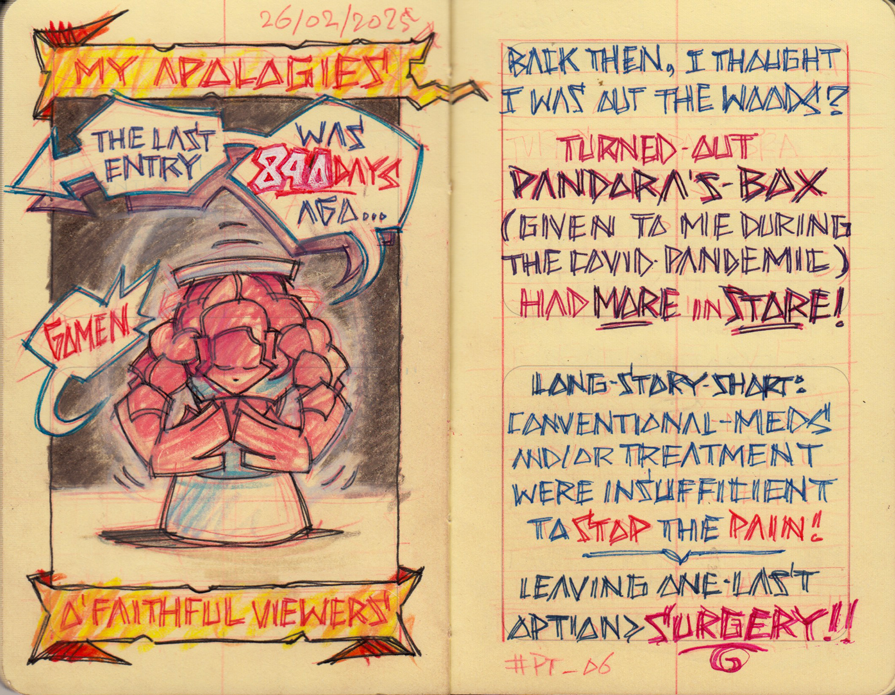 26/02/2025
MY APOLOGIES
THE LAST
ENTRY
WAS
840 DAYS
AGO...
GOMEN
O' FAITHFUL VIEWERS
BACK THEN, I THOUGHT
I WAS OUT THE WOODS?
TURNED-OUT
PANDORA'S-BOX
(GIVEN TO ME DURING
THE COVID-PANDEMIC)
HAD MORE IN STORE!
LONG-STORY-SHORT:
CONVENTIONAL-MEDS
AND/OR TREATMENT
WERE INSUFFICIENT
TO STOP THE PAIN!
LEAVING ONE-LAST
OPTION> SURGERY!!
#PT_06